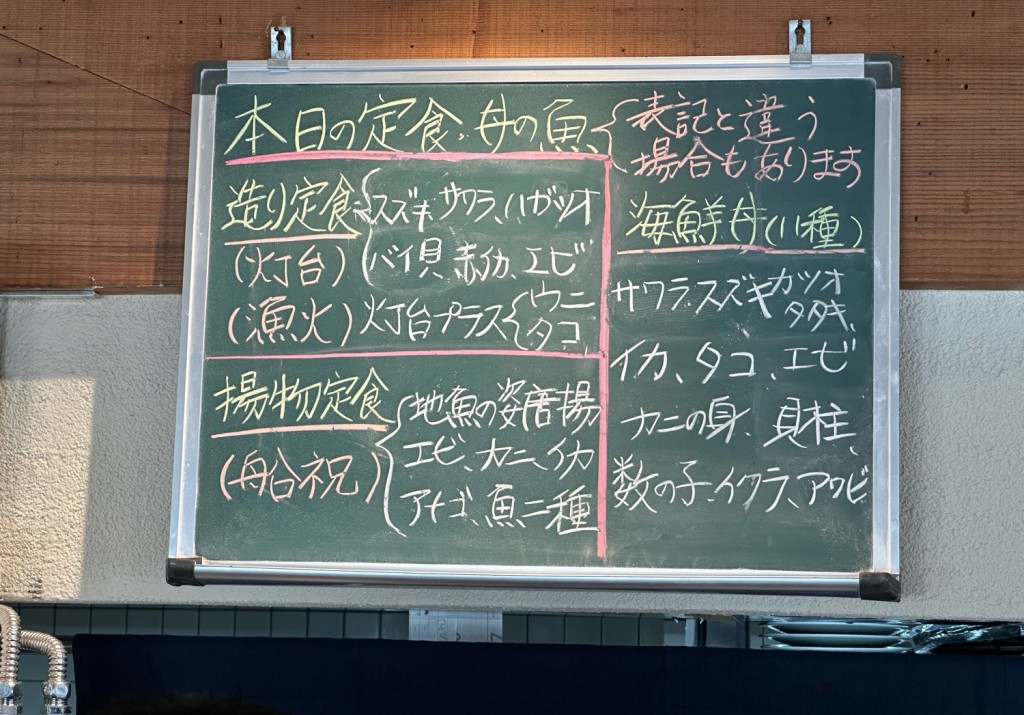 本日の定食、丼の魚、
表記と違う
場合もあります
造り定食
スズキ、サワラ、ハガツオ
(灯台)
バイ貝、赤イカ、エビ
(漁火)灯台プラス
ウニ
タコ、
揚物定食
地魚の姿唐揚
(舟台祝)
エビ、カニ、イカ
アナゴ、魚二種
海鮮丼(11種)
サワラ、スズキ、カツオ
タタキ、
イカ、タコ、エビ
カニの身、貝柱、
数の子、イクラ、アワビ